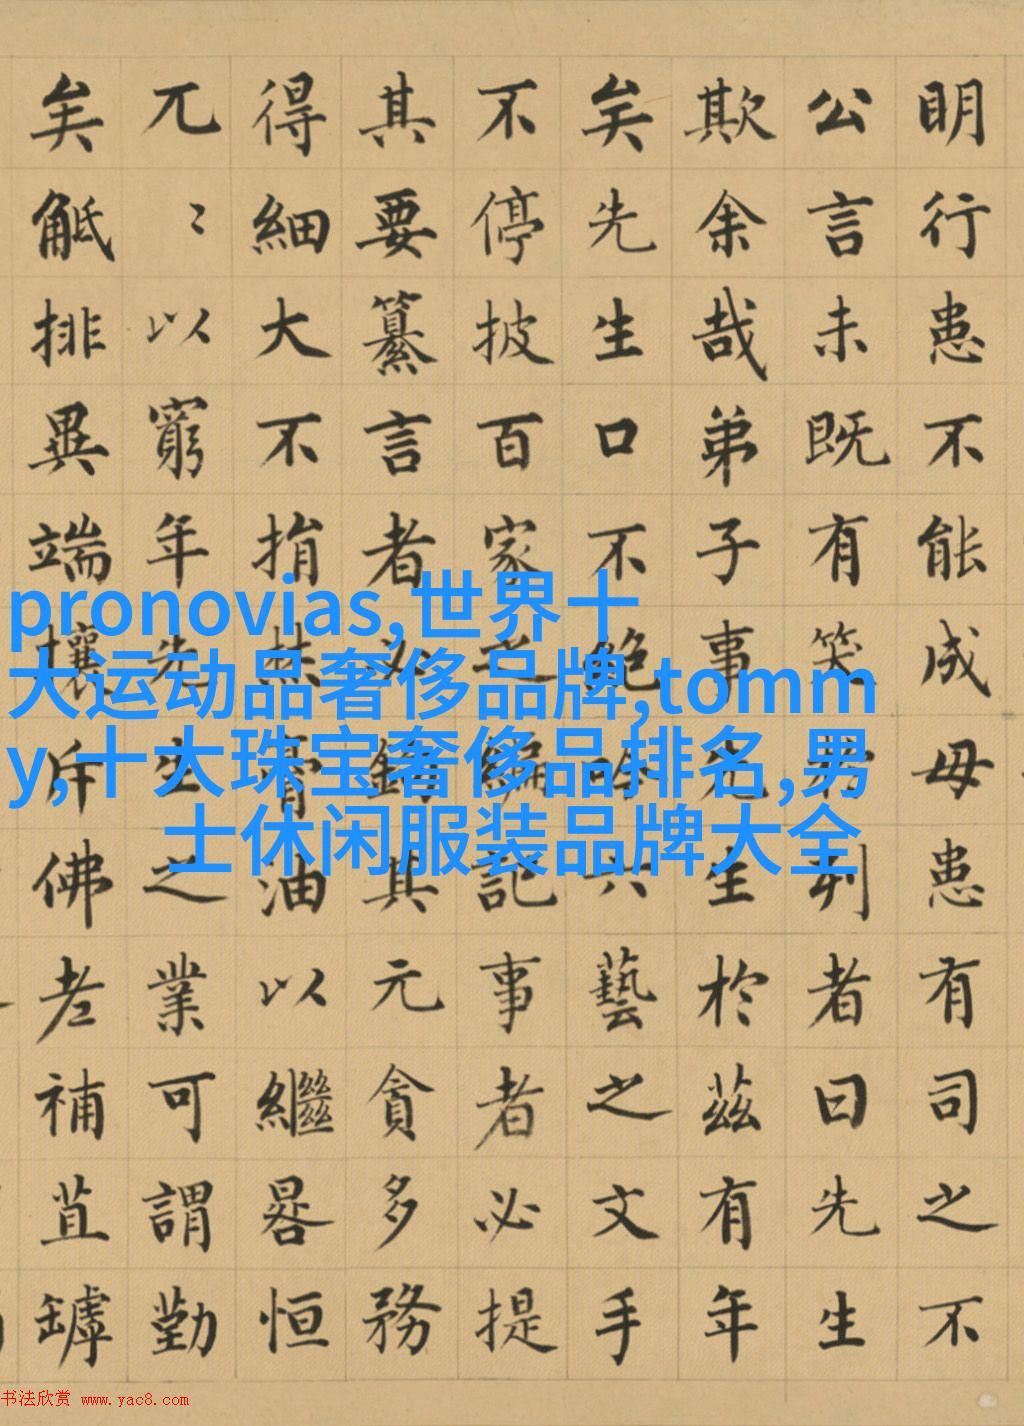 明行患不能成毋患有司之不
公言未既有笑於列者曰先生
欺余哉弟子事先生於茲有年
矣先生口不絕吟六藝之文手
不停披百家之編記事者必提
其要纂言者必鉤其元貪多務
得細大不捐焚膏油以繼晷恒
兀〻以窮年先生之業可謂勤
矣觝排異端攘斥佛老補苴罅
pronovias,世界十
大运动品奢侈品牌,tomm
y,十大珠宝奢侈品排名,男
士休闲服装品牌大全
书法欣赏 www.yac8.com